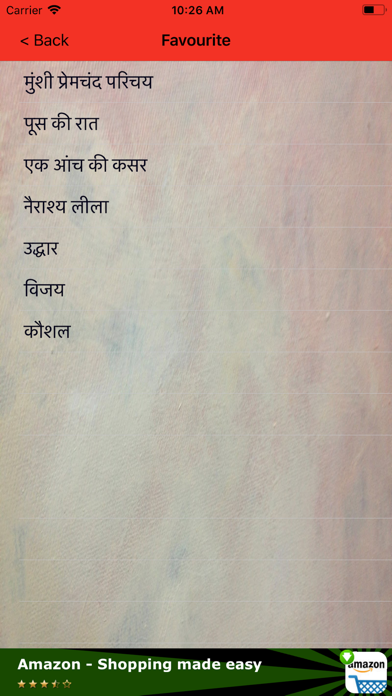 Carrier 10:26 AM
< Back Favourite
मुंशी प्रेमचंद परिचय
पूस की रात
एक आंच की कसर
नैराश्य लीला
उद्धार
विजय
कौशल
Amazon - Shopping made easy
amazon